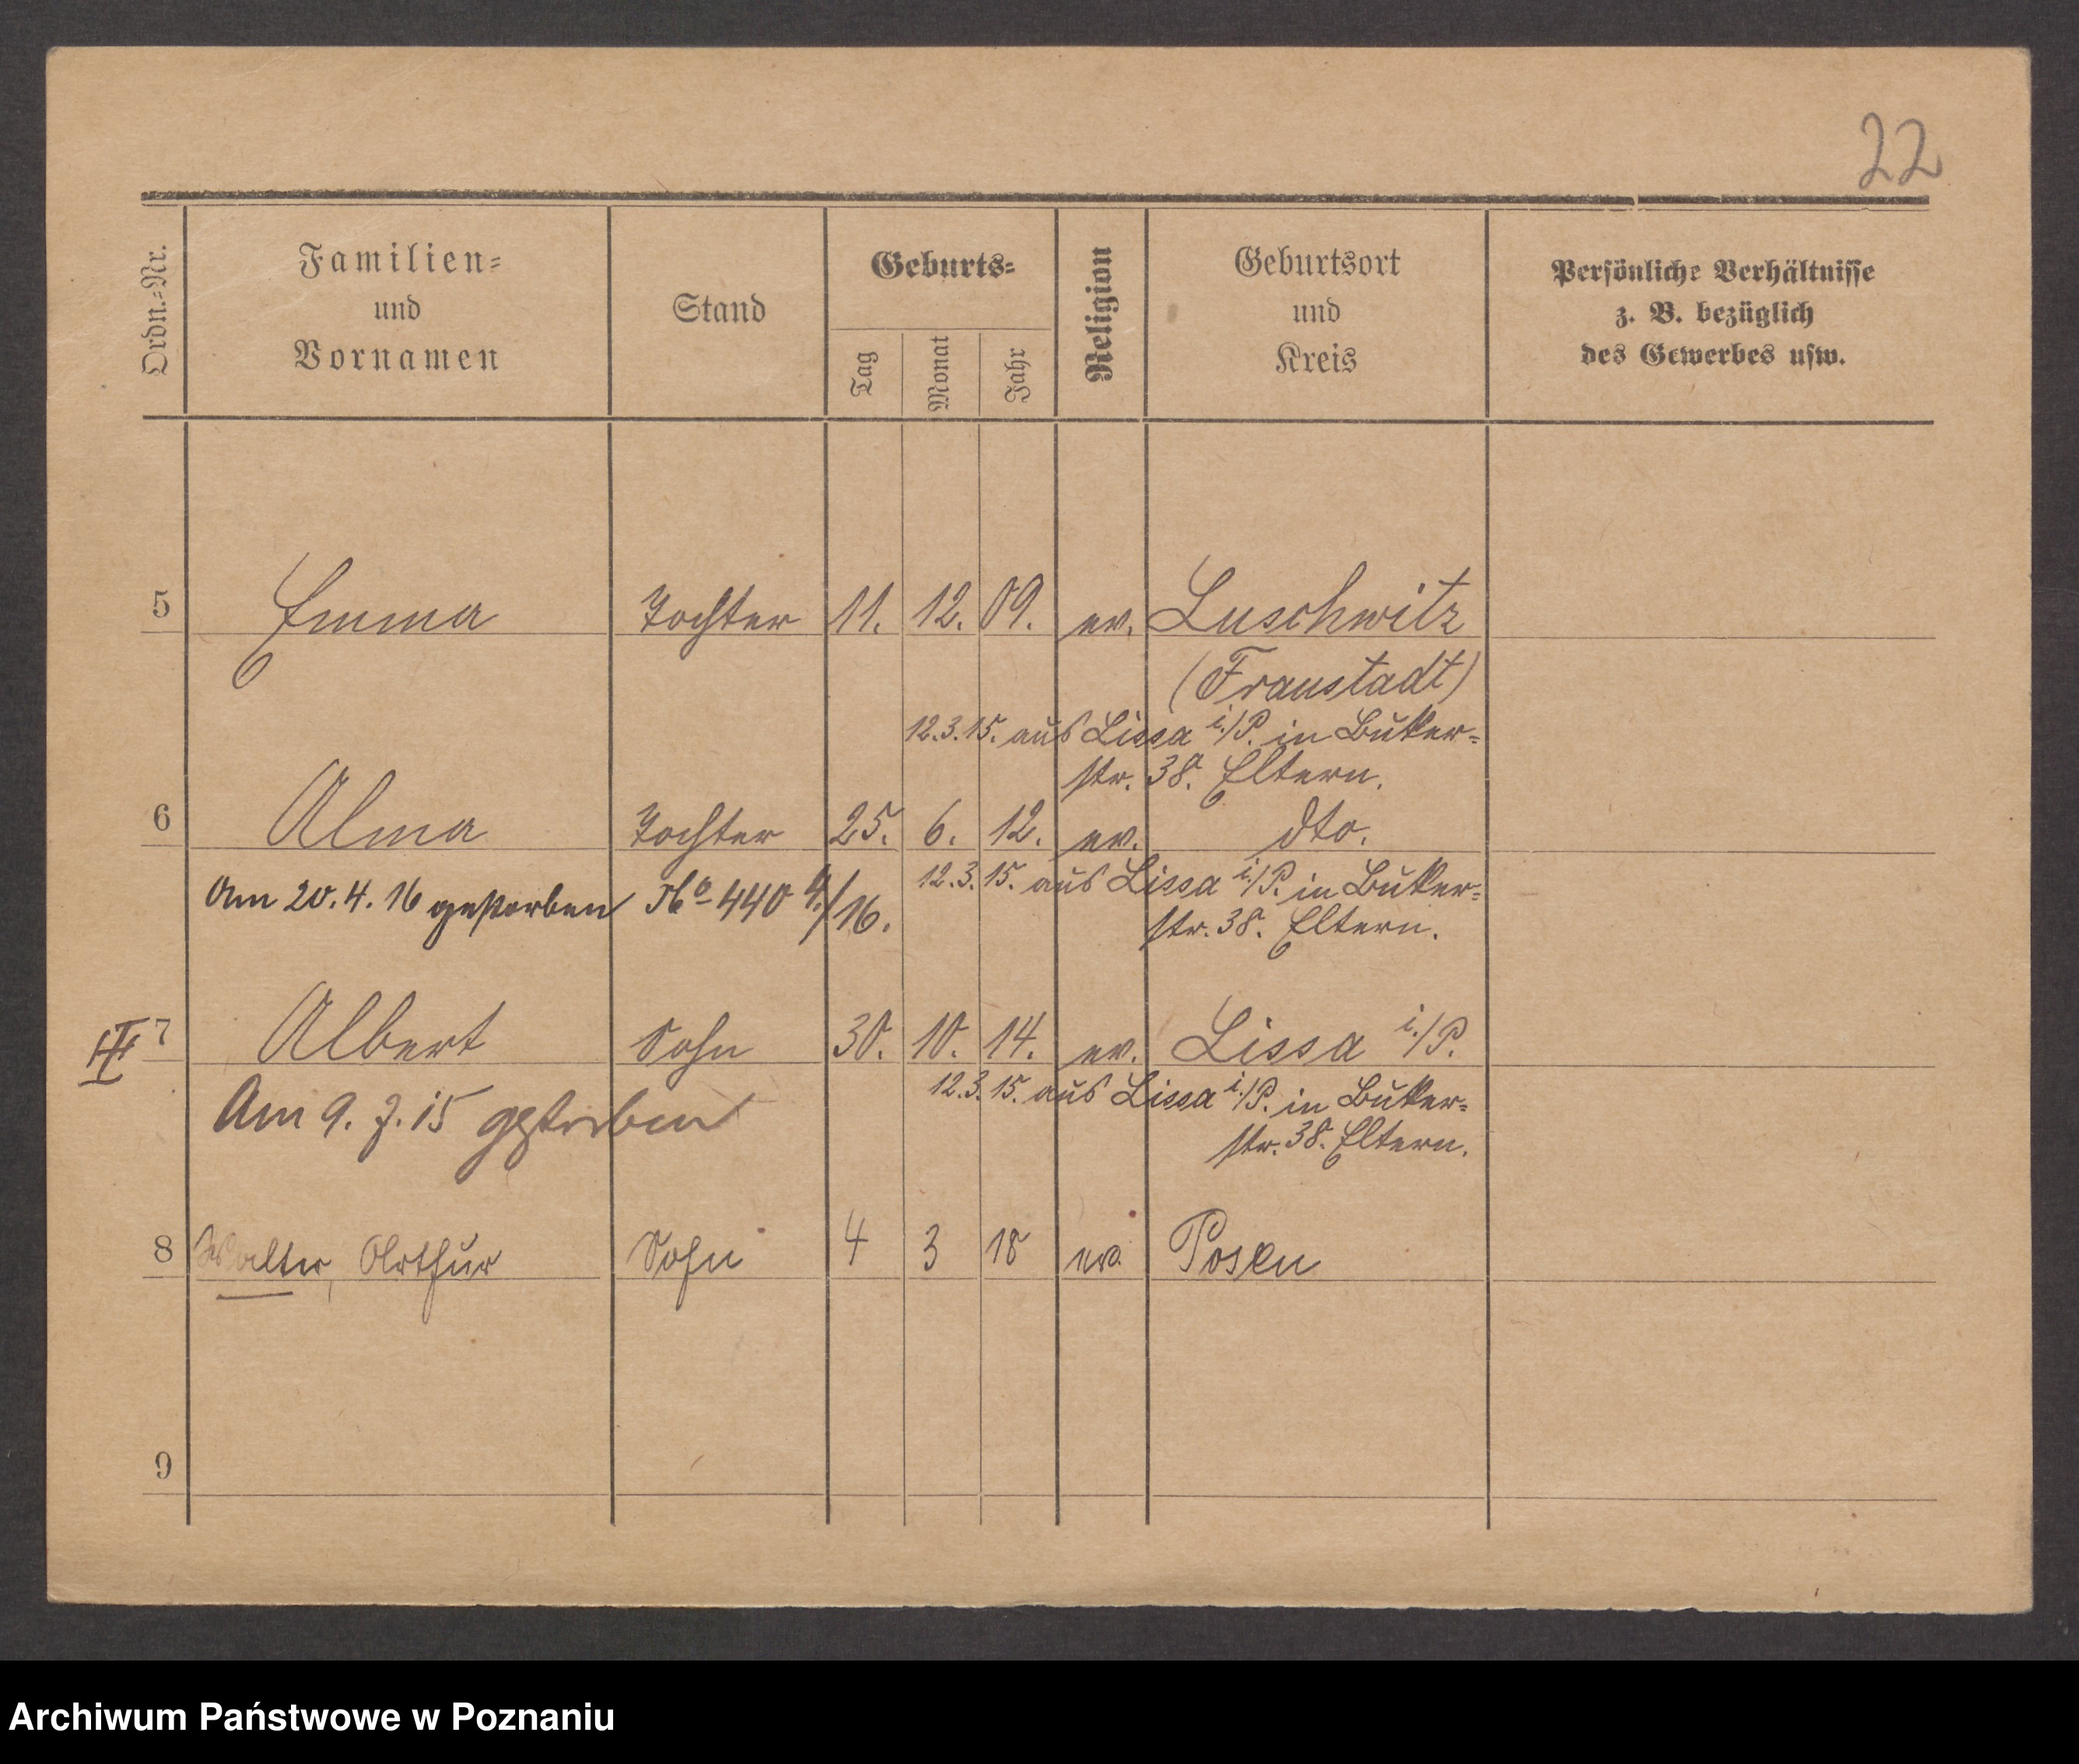 22
Ordn.-Nr.
Familien-
und
Vornamen
Stand
Geburts-
Tag
Monat
Jahr
Religion
Geburtsort
und
Kreis
Persönliche Verhältnisse
z. B. bezüglich
des Gewerbes usw.
5 Emma Tochter 11. 12. 09. ev. Luschwitz
(Fraustadt)
12.3.15. aus Lissa i./P. in Buker-
str. 38. Eltern.
6 Alma Tochter 25. 6. 12. ev. dto.
12.3.15. aus Lissa i./P. in Buker-
Am 20.4.16 gestorben No 440 4./16.
str. 38. Eltern.
7 Albert Sohn 30. 10. 14. ev. Lissa i./P.
12.3.15. aus Lissa i./P. in Buker-
Am 9. 7. 15 gestorben
str. 38. Eltern.
8 Walter, Arthur Sohn 4 3 18 ev. Posen
9
Archiwum Państwowe w Poznaniu